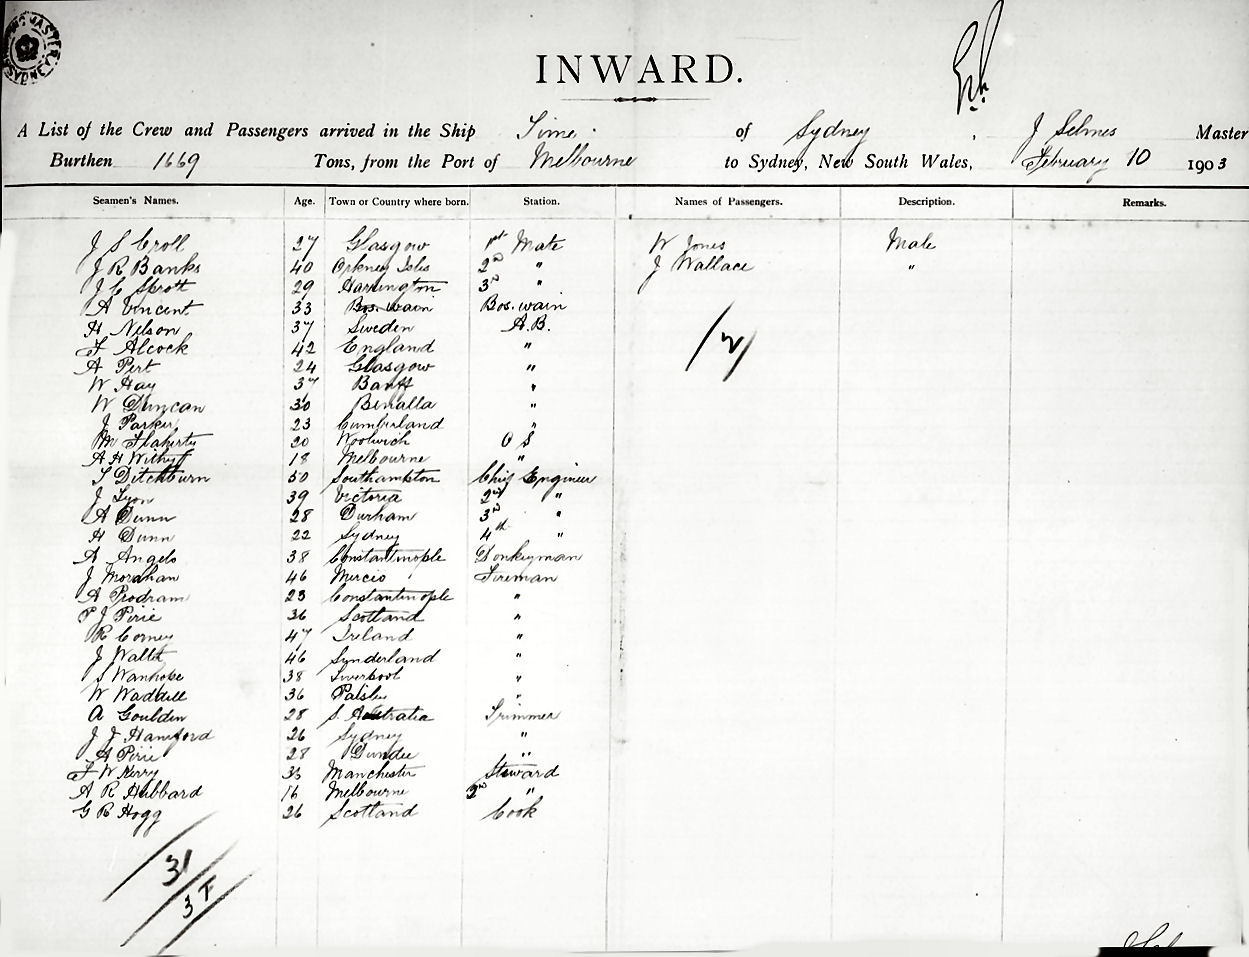 INWARD.
A List of the Crew and Passengers arrived in the Ship Time of Sydney, J Selmes Master
Burthen 1669 Tons, from the Port of Melbourne to Sydney, New South Wales, February 10 1903
Seamen's Names. Age. Town or Country where born. Station. Names of Passengers. Description. Remarks.
J S Croll 27 Glasgow 1st Mate W Jones Male
J R Banks 40 Orkney Isles 2nd " J Wallace "
J C Sprott 29 Harrington 3rd "
A Vincent 33 Bos. wain Bos. wain
H Nelson 37 Sweden A.B.
F Alcock 42 England "
A Pert 24 Glasgow "
W Hay 37 Banff "
W Duncan 30 Benalla "
J Parker 23 Cumberland "
M Flaherty 20 Woolwich O S
A H 18 Melbourne "
S Ditchburn 50 Southampton Chief Engineer
J Lyon 39 Victoria 2nd "
A Dunn 28 Durham 3rd "
H Dunn 22 Sydney 4th "
A Angelo 38 Constantinople Donkeyman
J Morahan 46 Fireman
A Prodram 23 Constantinople "
P J Pirie 36 Scotland "
R Corney 47 Ireland "
J 46 Sunderland "
S Wanhope 38 Liverpool "
W Waddell 36 Paisley "
A Goulden 28 S. Australia Trimmer
J J Hansford 26 Sydney "
A Pirie 28 Dundee "
F W Kerry 33 Manchester Steward
A R Hubbard 16 Melbourne 2nd "
G R Hogg 26 Scotland Cook
/2/
31
3 F